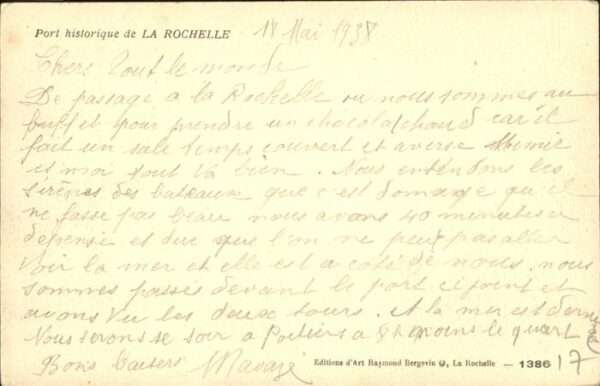 Port historique de LA ROCHELLE 18 Mai 1938
Chers Tout le monde
De passage a la Rochelle ou nous sommes au
buffet pour prendre un chocolat chaud car il
fait un sale temps couvert et averse Mimie
et moi tout va bien. Nous entendons les
sirènes des bateaux que c'est domage qu'il
ne fasse pas beau nous avons 40 minutes a
dépensé et dire que l'on ne peut pas aller
voir la mer et elle est a coté de nous. nous
sommes passés devant le port et
avons vu les deux tours. et la mer est
Nous serons se soir a Poitiers a 8h moins le quart
Bons baisers
Editions d'Art Raymond Bergevin, La Rochelle — 1386
17